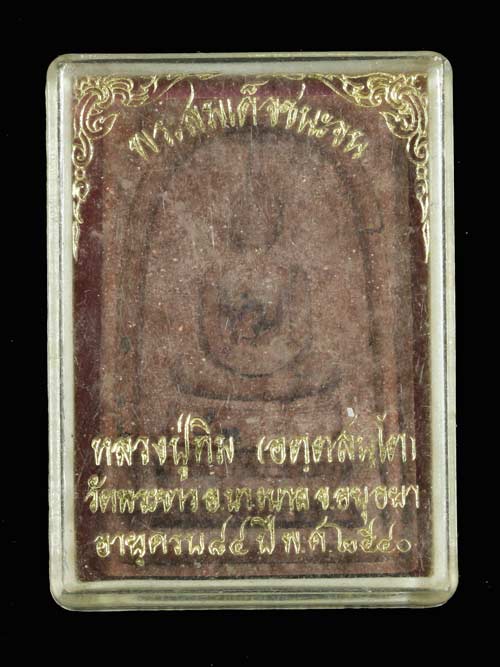 พระสมเด็จชนะจน
หลวงปู่ทิม (อตฺตสนฺโต)
วัดพระขาว อ.บางบาล จ.อยุธยา
อายุครบ ๘๔ ปี พ.ศ. ๒๕๔๐